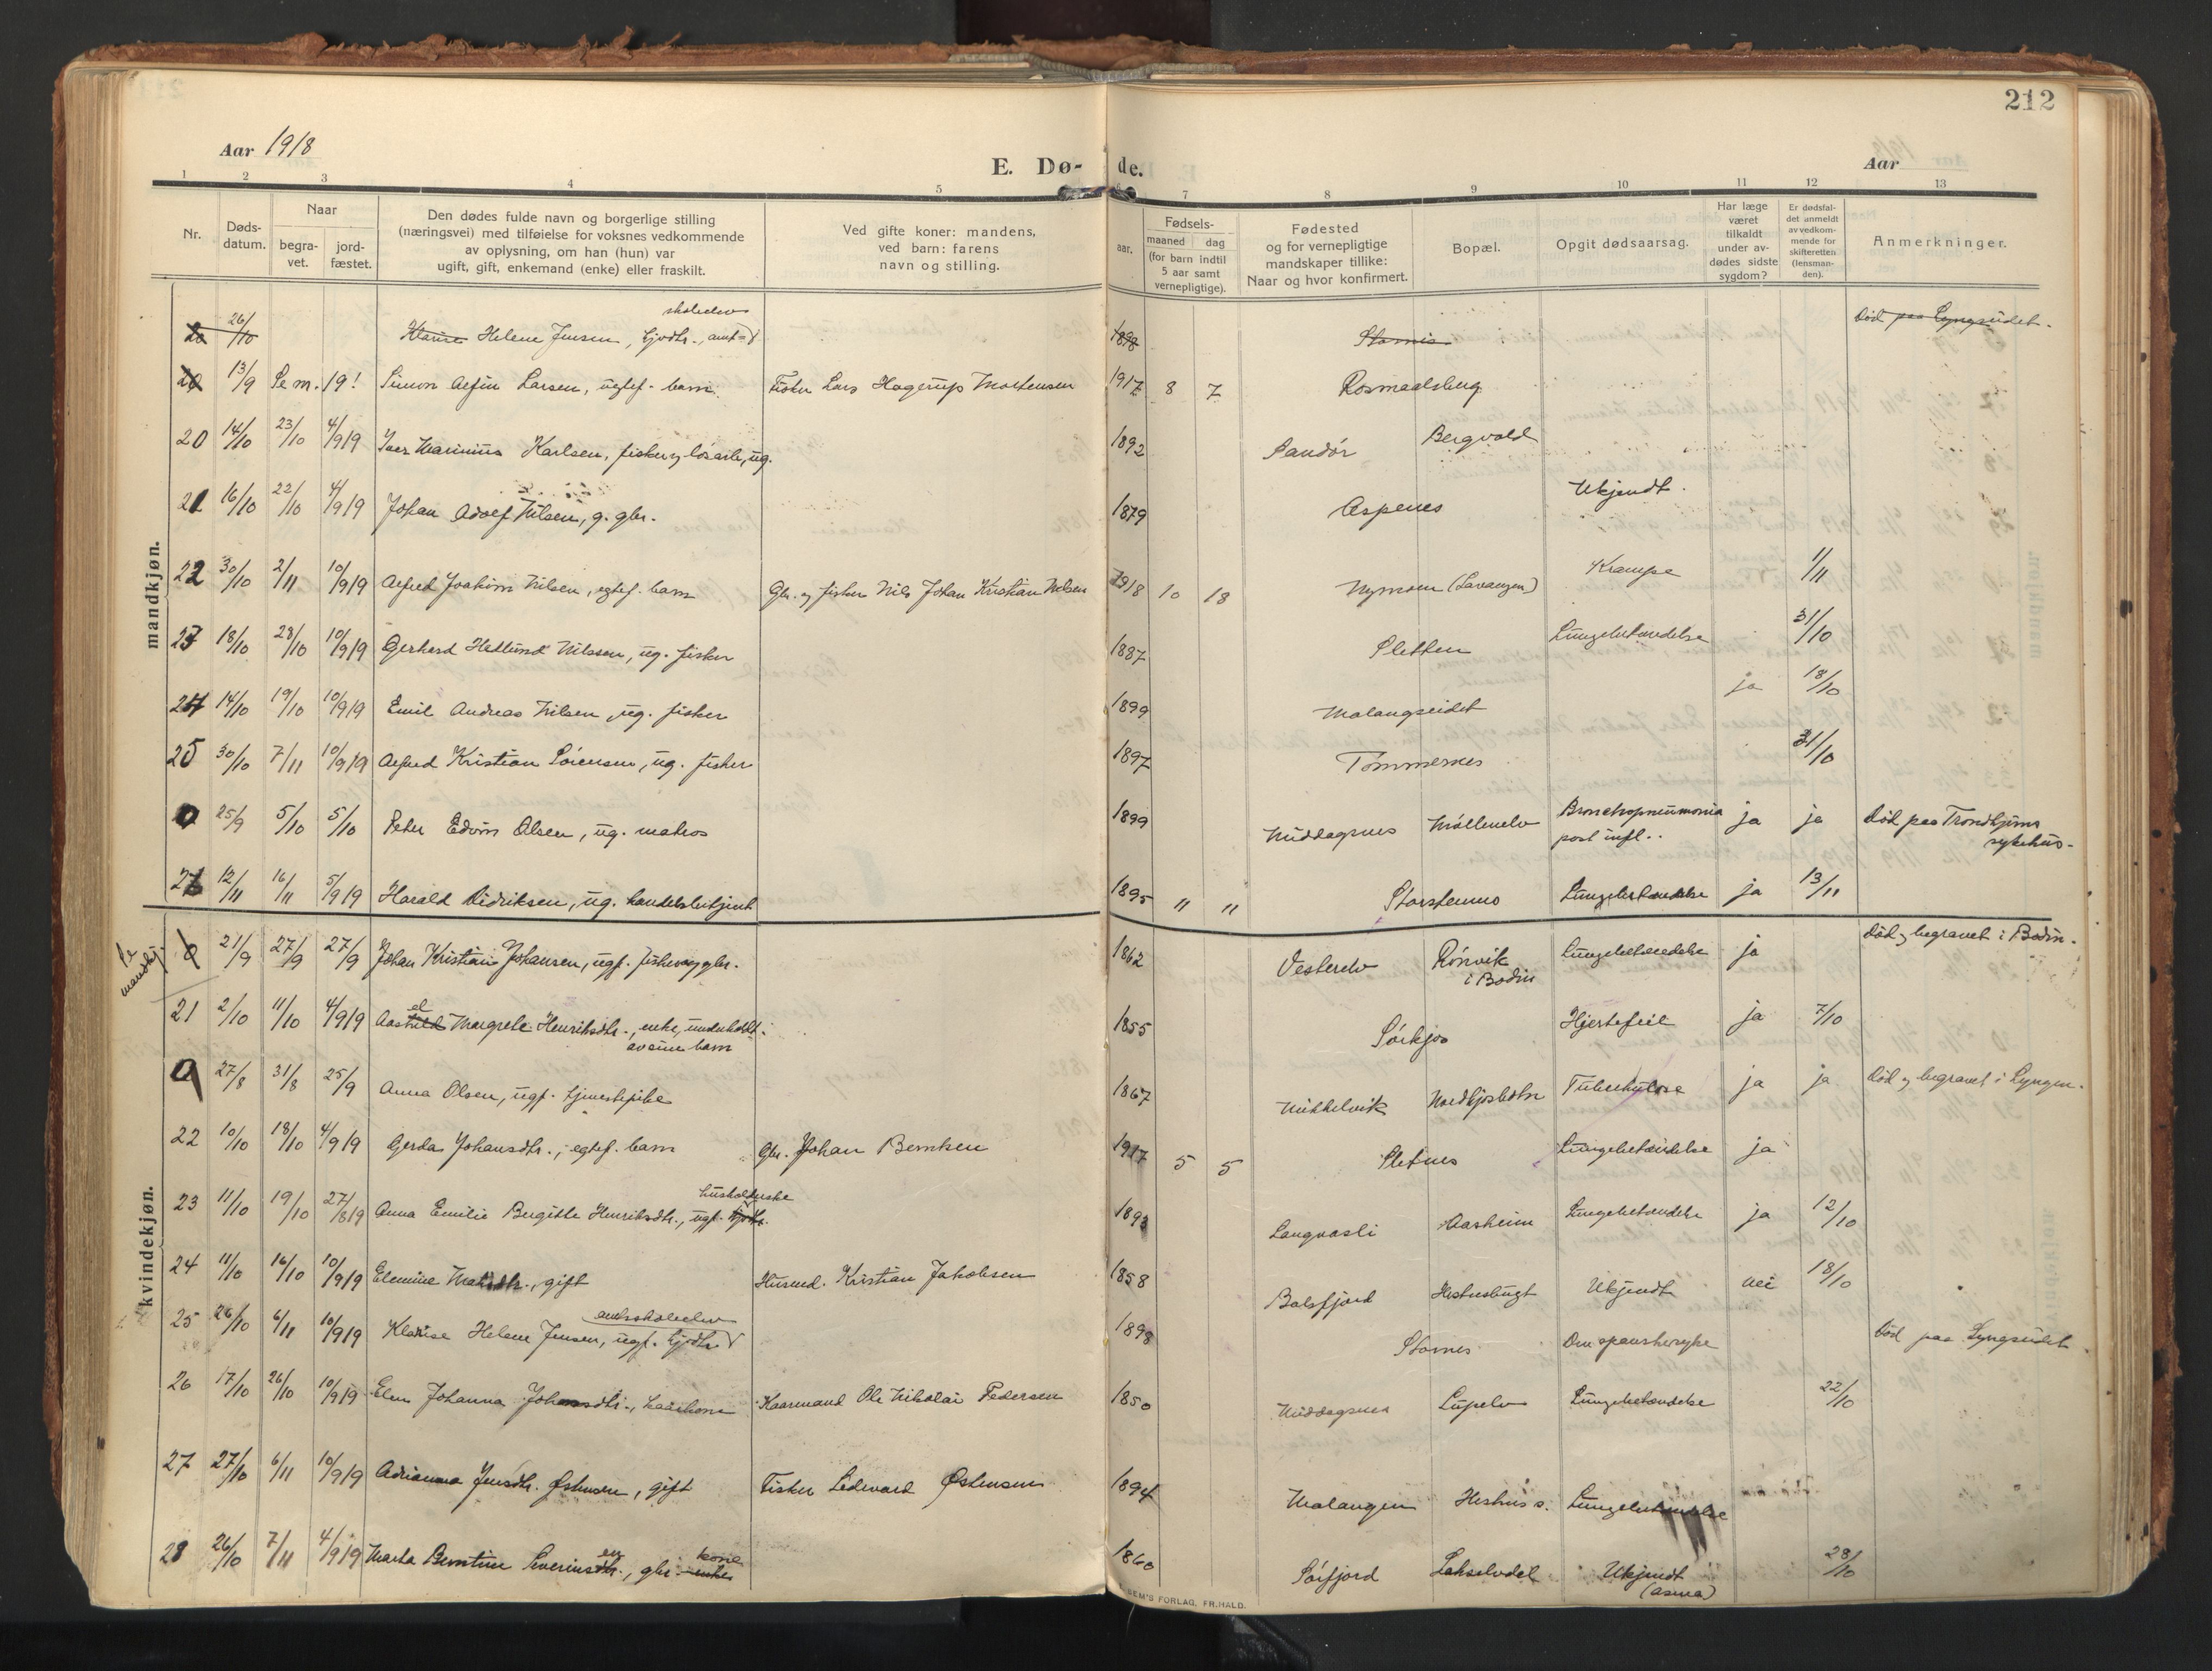 212
Aar 1918
E. Dø- de.
Aar
1 2 3 4 5 7 8 9 10 11 12 13
Nr.
Døds-
datum.
Naar
begra-
vet.
jord-
fæstet.
Den dødes fulde navn og borgerlige stilling
(næringsvei) med tilføielse for voksnes vedkommende
av oplysning, om han (hun) var
ugift, gift, enkemand (enke) eller fraskilt.
Ved gifte koner: mandens,
ved barn: farens
navn og stilling.
aar.
Fødsels-
maaned dag
(for barn indtil
5 aar samt
vernepligtige).
Fødested
og for vernepligtige
mandskaper tillike:
Naar og hvor konfirmert.
Bopæl.
Opgit dødsaarsag.
Har læge
været
tilkaldt
under av-
dødes sidste
sygdom?
Er dødsfal-
det anmeldt
av vedkom-
mende for
skifteretten
(lensman-
den).
Anmerkninger.
mandkjøn.
skoleelev
20 26/10 Klarise Helene Jensen, Gjvdtr., amt= 1898 Stornes Død paa Lyngseidet.
20 13/9 Se m. 19! Simon Alfin Larsen, ugtef. barn. Fisker Lars Hagerup Mortensen 1917 8 7 Rosmaalsberg
20 14/10 23/10 4/919 Iver Marinius Karlsen, fisker og løsarb., ug. 1892 Sandør Bergvold
21 16/10 22/10 4/919 Johan Adolf Nilsen, g. gbr. 1879 Aspenes Ukjendt.
22 30/10 2/11 10/919 Alfred Joakim Nilsen, egtef. barn Gbr. og fisker Nils Johan Kristian Nilsen 1918 10 18 Nymoen (Lavangen) Krampe 1/11
23 18/10 28/10 10/919 Gerhard Hetlund Nilssen, ug. fisker 1887 Sletten Lungebetændelse 31/10
24 14/10 19/10 10/919 Emil Andreas Nilsen, ug. fisker 1899 Malangseidet ja 18/10
25 30/10 7/11 10/919 Alfred Kristian Sørensen, ug. fisker 1897 Tømmernes 31/10
0 25/9 5/10 5/10 Peter Edvin Olsen, ug. matros 1899 Middagsnes Møllenelv Bronchopneumonia post infl.. ja ja Død paa Trondhjems
sykehus.
26 12/11 16/11 5/919 Harald Didriksen, ug. handelsbetjent 1895 " " Storstennes Lungebetændelse ja 13/11
Se mandkj.
0 21/9 27/9 27/9 Johan Kristian Johansen, ugf. fisker og gbr. 1862 Vesterelv Rønvik i Bodin Lungebetændelse ja Død og begravet i Bodin.
kvindekjøn.
21 2/10 11/10 4/919 Aashild el Margrete Henriksdtr., enke, underholdt av sine barn 1855 Sørkjos Hjertefeil ja 7/10
0 27/8 31/8 25/9 Anna Olsen, ugf. tjenestepike 1867 Mikkelvik Nordkjosbotn Tuberkulose ja ja Død og begravet i Lyngen.
22 10/10 18/10 4/919 Gerda Johansdtr., egtef. barn Gbr. Johan Berntsen 1917 5 5 Sletnes Lungebetændelse ja
husholderske
23 11/10 19/10 27/819 Anna Emilie Birgitte Henriksdtr., ugf. gjvdtr. 1893 Langvasli Aasheim Lungebetændelse ja 12/10
24 11/10 16/10 10/919 Elenine Matsdtr., gift Husmd. Kristian Jakobsen 1858 Balsfjord Hestnesbugt Ukjendt nei 18/10
amtsskoleelev
25 26/10 6/11 10/919 Klarise Helene Jensen, ugf. Gjvdtr 1898 Stornes Den spanskesyke Død paa Lyngseidet.
26 17/10 26/10 10/919 Elen Johanna Johansdtr., kaarkone Kaarmand Ole Nikolai Pedersen 1850 Middagsnes Lupelv Lungebetændelse 22/10
27 27/10 6/11 10/919 Adrianna Jensdtr. Østensen, gift Fisker Ledevard Østensen 1894 Malangen Heshus s. Lungebetændelse
28 26/10 7/11 4/919 Marta Berntine Severinsdtr. en, gbr. enke kone 1860 Sørfjord Lakselvdal Ukjendt (asma) 28/10
SEM'S FORLAG, FR.HALD.